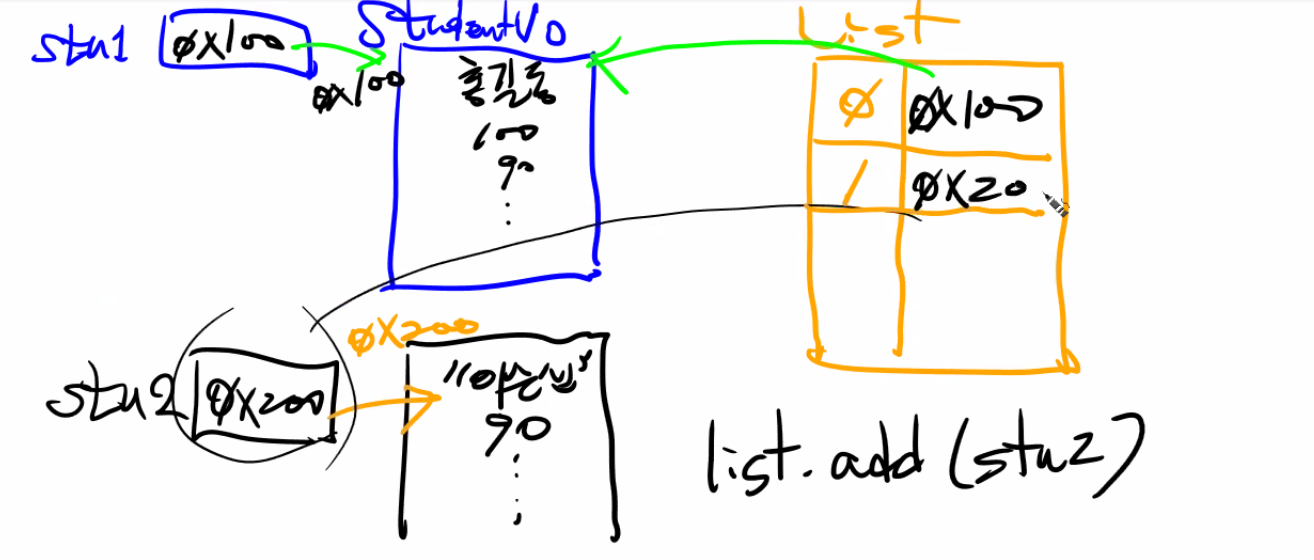 stu1
0x100
StudentVO
0x100
홍길동
100
90
List
0
0x100
1
0x20
stu2
0x200
0x200
90
list.add(stu2)